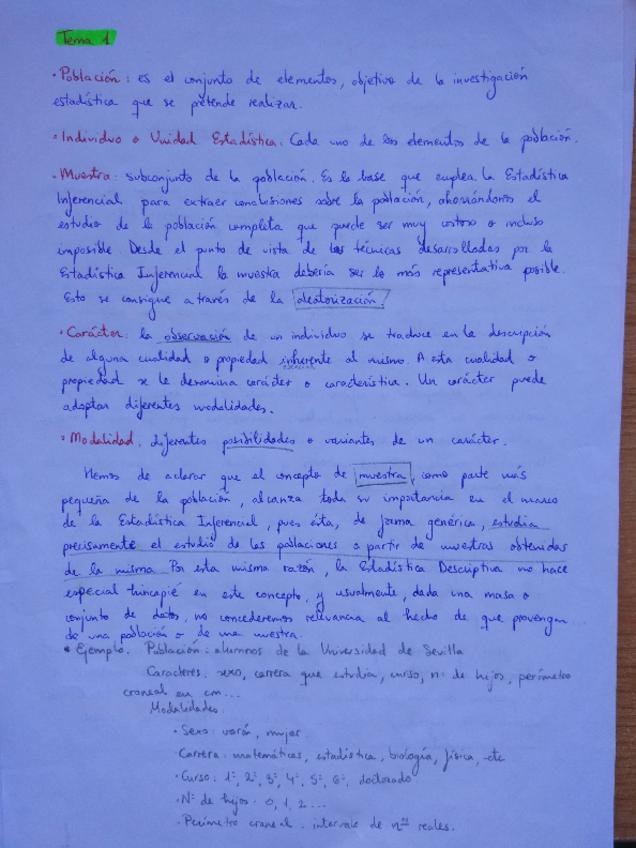 Tema 1
· Población: es el conjunto de elementos, objetivo de la investigación
estadística que se pretende realizar.
· Individuo o Unidad Estadística: Cada uno de los elementos de la población.
· Muestra: subconjunto de la población. Es la base que emplea la Estadística
Inferencial para extraer conclusiones sobre la población, ahorrándonos el
estudio de la población completa que puede ser muy costoso o incluso
imposible. Desde el punto de vista de las técnicas desarrolladas por la
Estadística Inferencial la muestra debería ser lo más representativa posible.
Esto se consigue a través de la aleatorización.
· Carácter: la observación de un individuo se traduce en la descripción
de alguna cualidad o propiedad inherente al mismo. A esta cualidad o
propiedad se le denomina carácter o característica. Un carácter puede
adoptar diferentes modalidades.
· Modalidad: diferentes posibilidades o variantes de un carácter.
Hemos de aclarar que el concepto de muestra, como parte más
pequeña de la población, alcanza toda su importancia en el marco
de la Estadística Inferencial, pues ésta, de forma genérica, estudia
precisamente el estudio de las poblaciones a partir de muestras obtenidas
de la misma. Por esta misma razón, la Estadística Descriptiva no hace
especial hincapié en este concepto, y usualmente, dada una masa o
conjunto de datos, no concederemos relevancia al hecho de que provengan
de una población o de una muestra.
· Ejemplo. Población: alumnos de la Universidad de Sevilla
Caracteres: sexo, carrera que estudia, curso, nº de hijos, perímetro
craneal en cm...
Modalidades
· Sexo: varón, mujer.
· Carrera: matemáticas, estadística, biología, física, etc
· Curso: 1º, 2º, 3º, 4º, 5º, 6º, doctorado
· Nº de hijos: 0, 1, 2...
· Perímetro craneal: intervalo de nos reales.